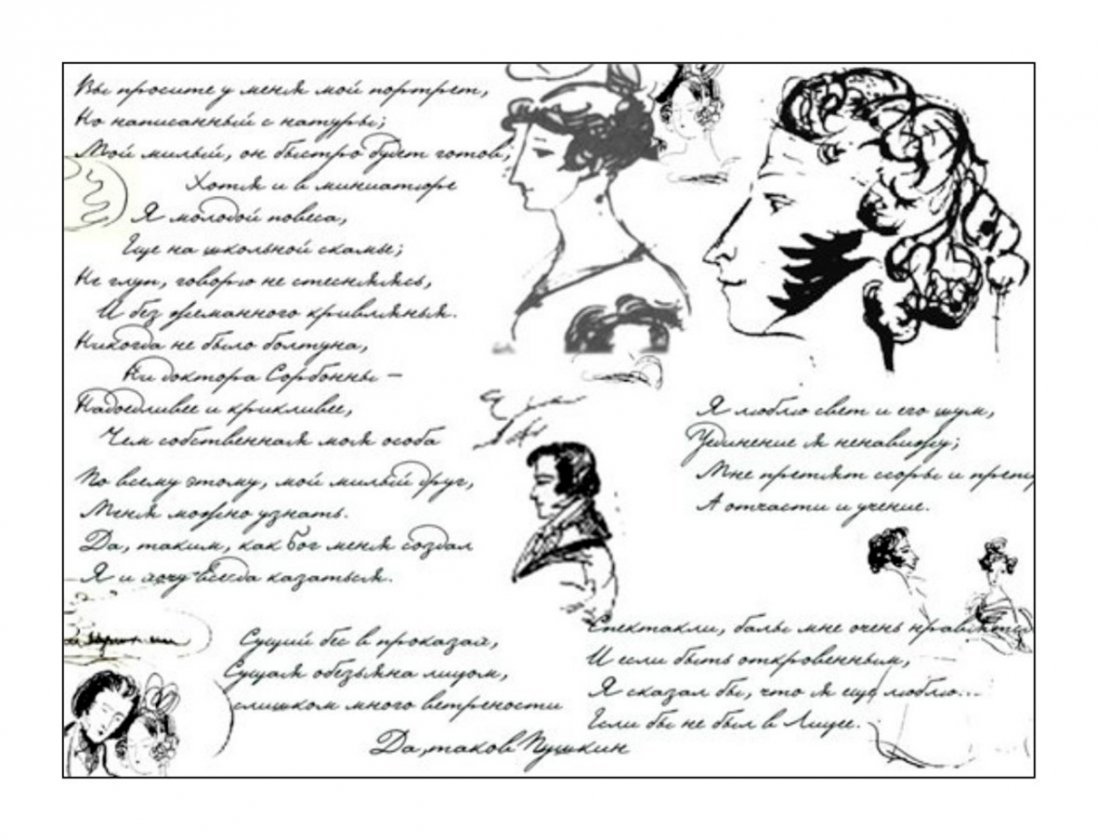 Вы просите у меня мой портрет,
Но написанный с натуры;
Мой милый, он быстро будет готов,
Хотя и в миниатюре
Я молодой повеса,
Еще на школьной скамье;
Не глуп, говорю не стесняясь,
И без жеманного кривлянья.
Никогда не было болтуна,
Ни доктора Сорбонны —
Надоедливее и крикливее,
Чем собственная моя особа
По всему этому, мой милый друг,
Меня можно узнать.
Да, таким, как бог меня создал
Я и хочу всегда казаться.
Сущий бес в проказах,
Сущая обезьяна лицом,
слишком много ветрености
Да, таков Пушкин
Я люблю свет и его шум,
Уединение я ненавижу;
Мне претят ссоры и препи
А отчасти и учение.
Спектакли, балы мне очень нравятся
И если быть откровенным,
Я сказал бы, что я еще люблю...
Если бы не был в Лицее.